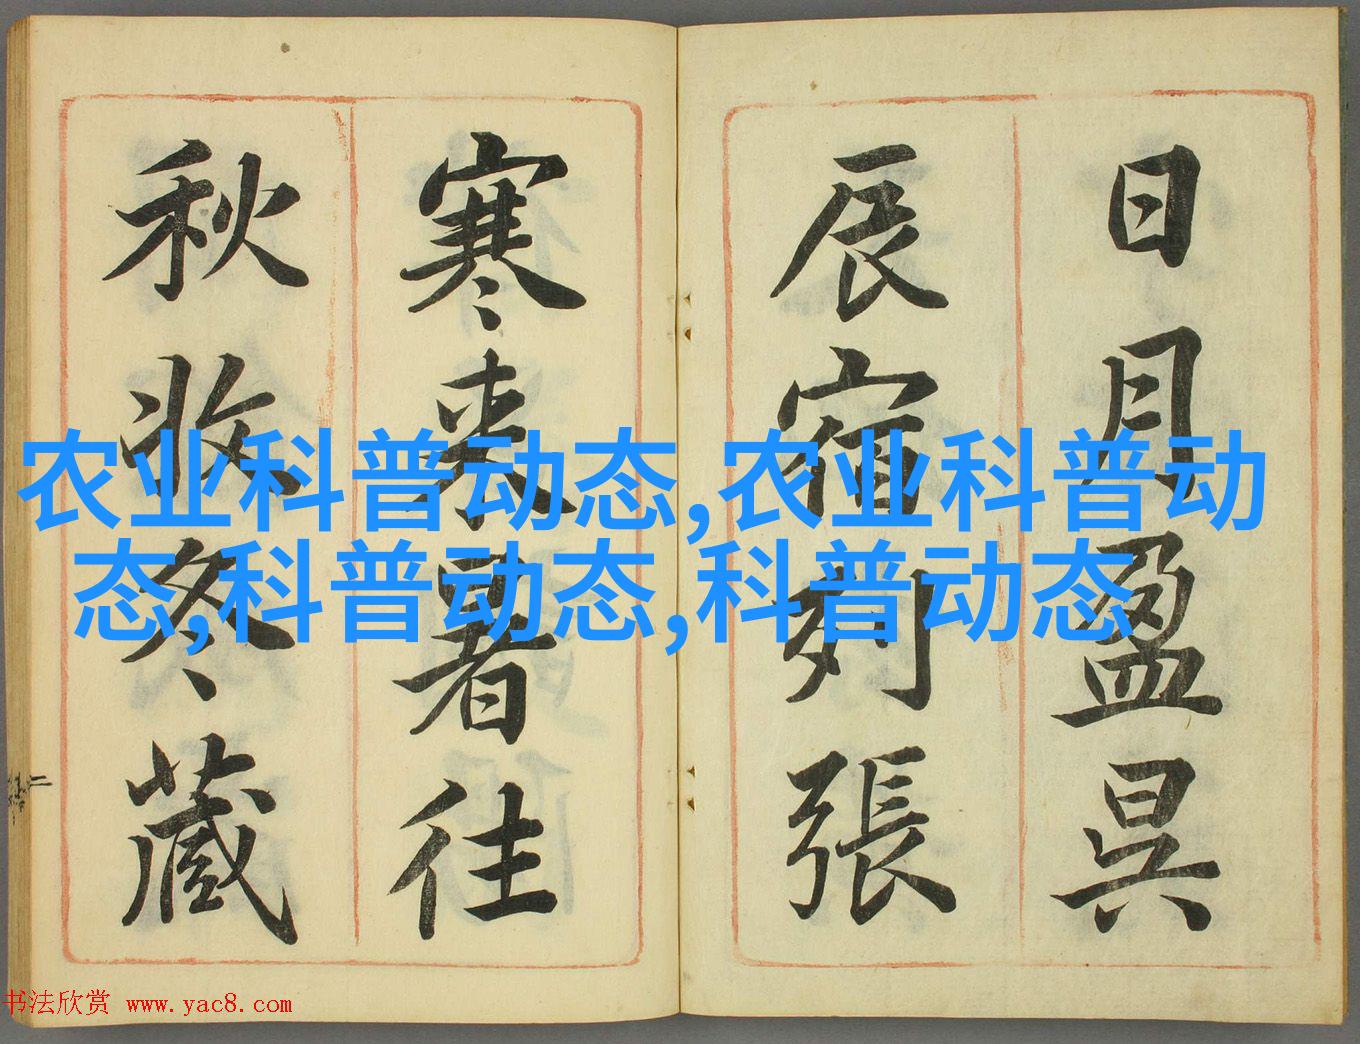 日月盈昃
辰宿列張
寒来暑往
秋收冬藏
农业科普动态,农业科普动
态,科普动态,科普动态
书法欣赏 www.yac8.com